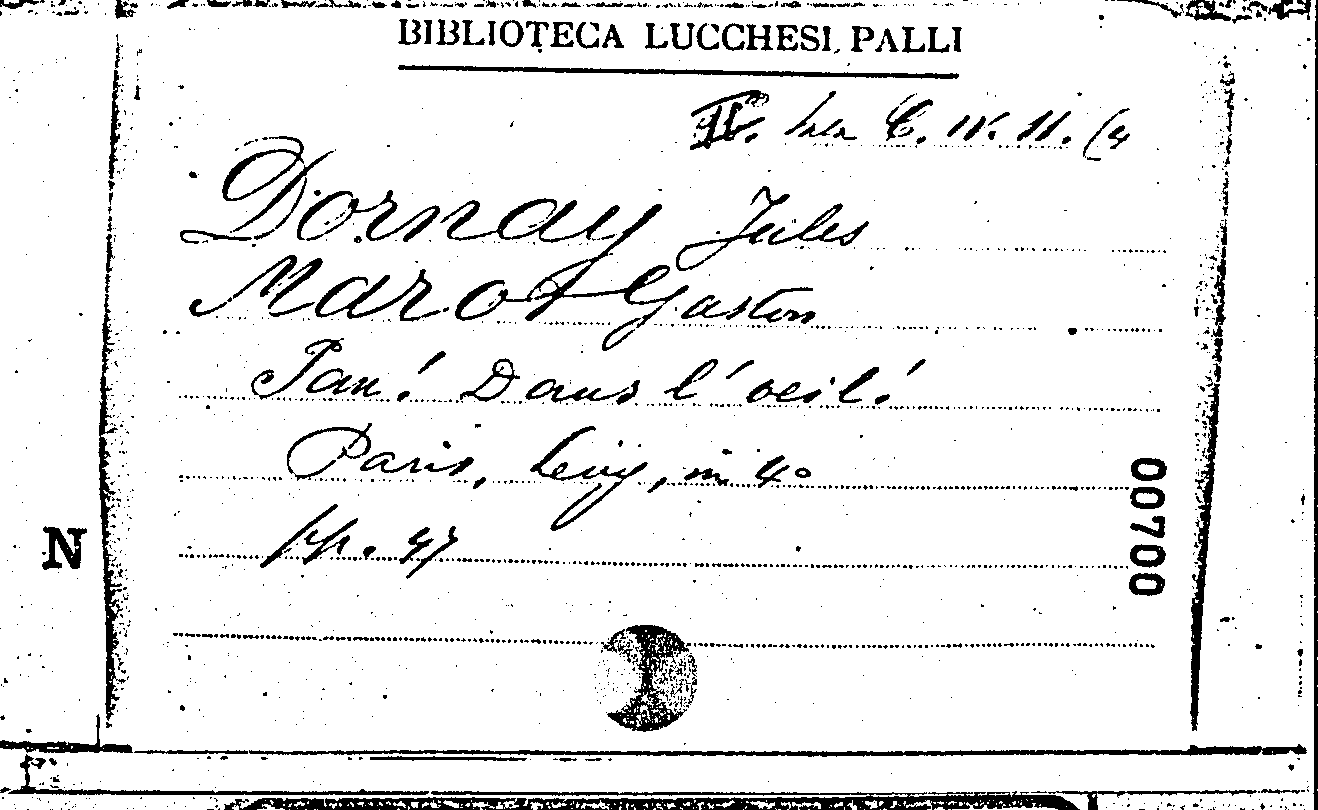 BIBLIOTECA LUCCHESI PALLI
II. Sala C. IV. 11. (4
Dornay Jules
Marot Gaston
Pan! Dans l'oeil!
Paris, Levy, in 4°
pp. 47
N
00700